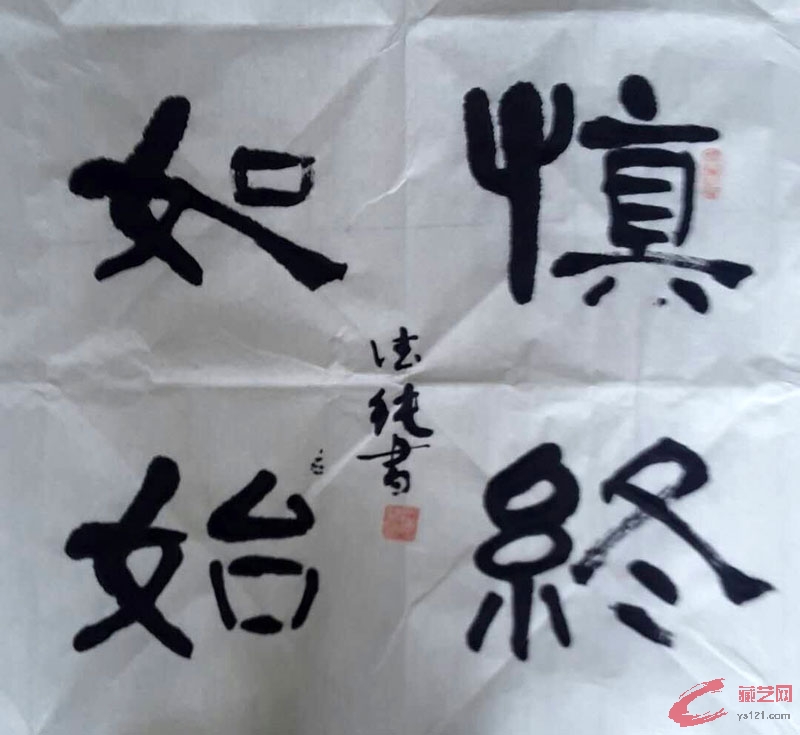 慎終
如始
法純書
藏艺网
ys121.com